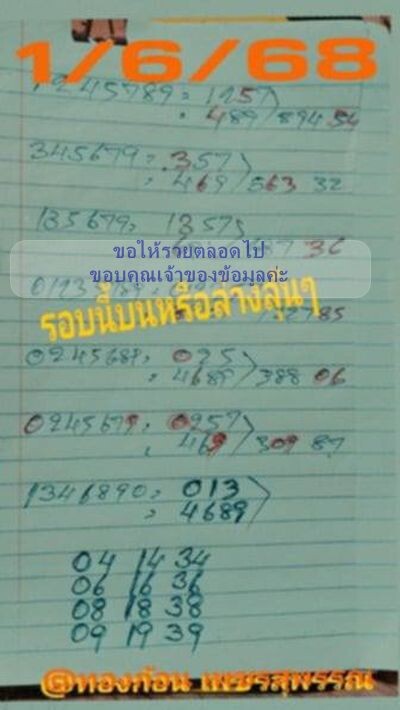 1/6/68
1245789 = 1257
= 489 / 594 54
345679 = 357
= 469 / 563 32
135679 = 1357
36
ขอให้รวยตลอดไป
ขอบคุณเจ้าของข้อมูลค่ะ
รอบนี้บนหรือล่างลุ้นๆ
85
0245689 = 025
= 4689 / 388 06
0245679 = 0257
= 469 / 309 87
1346890 = 013
= 4689
04 14 34
06 16 36
08 18 38
09 19 39
@ทองก้อน เพชรสุพรรณ